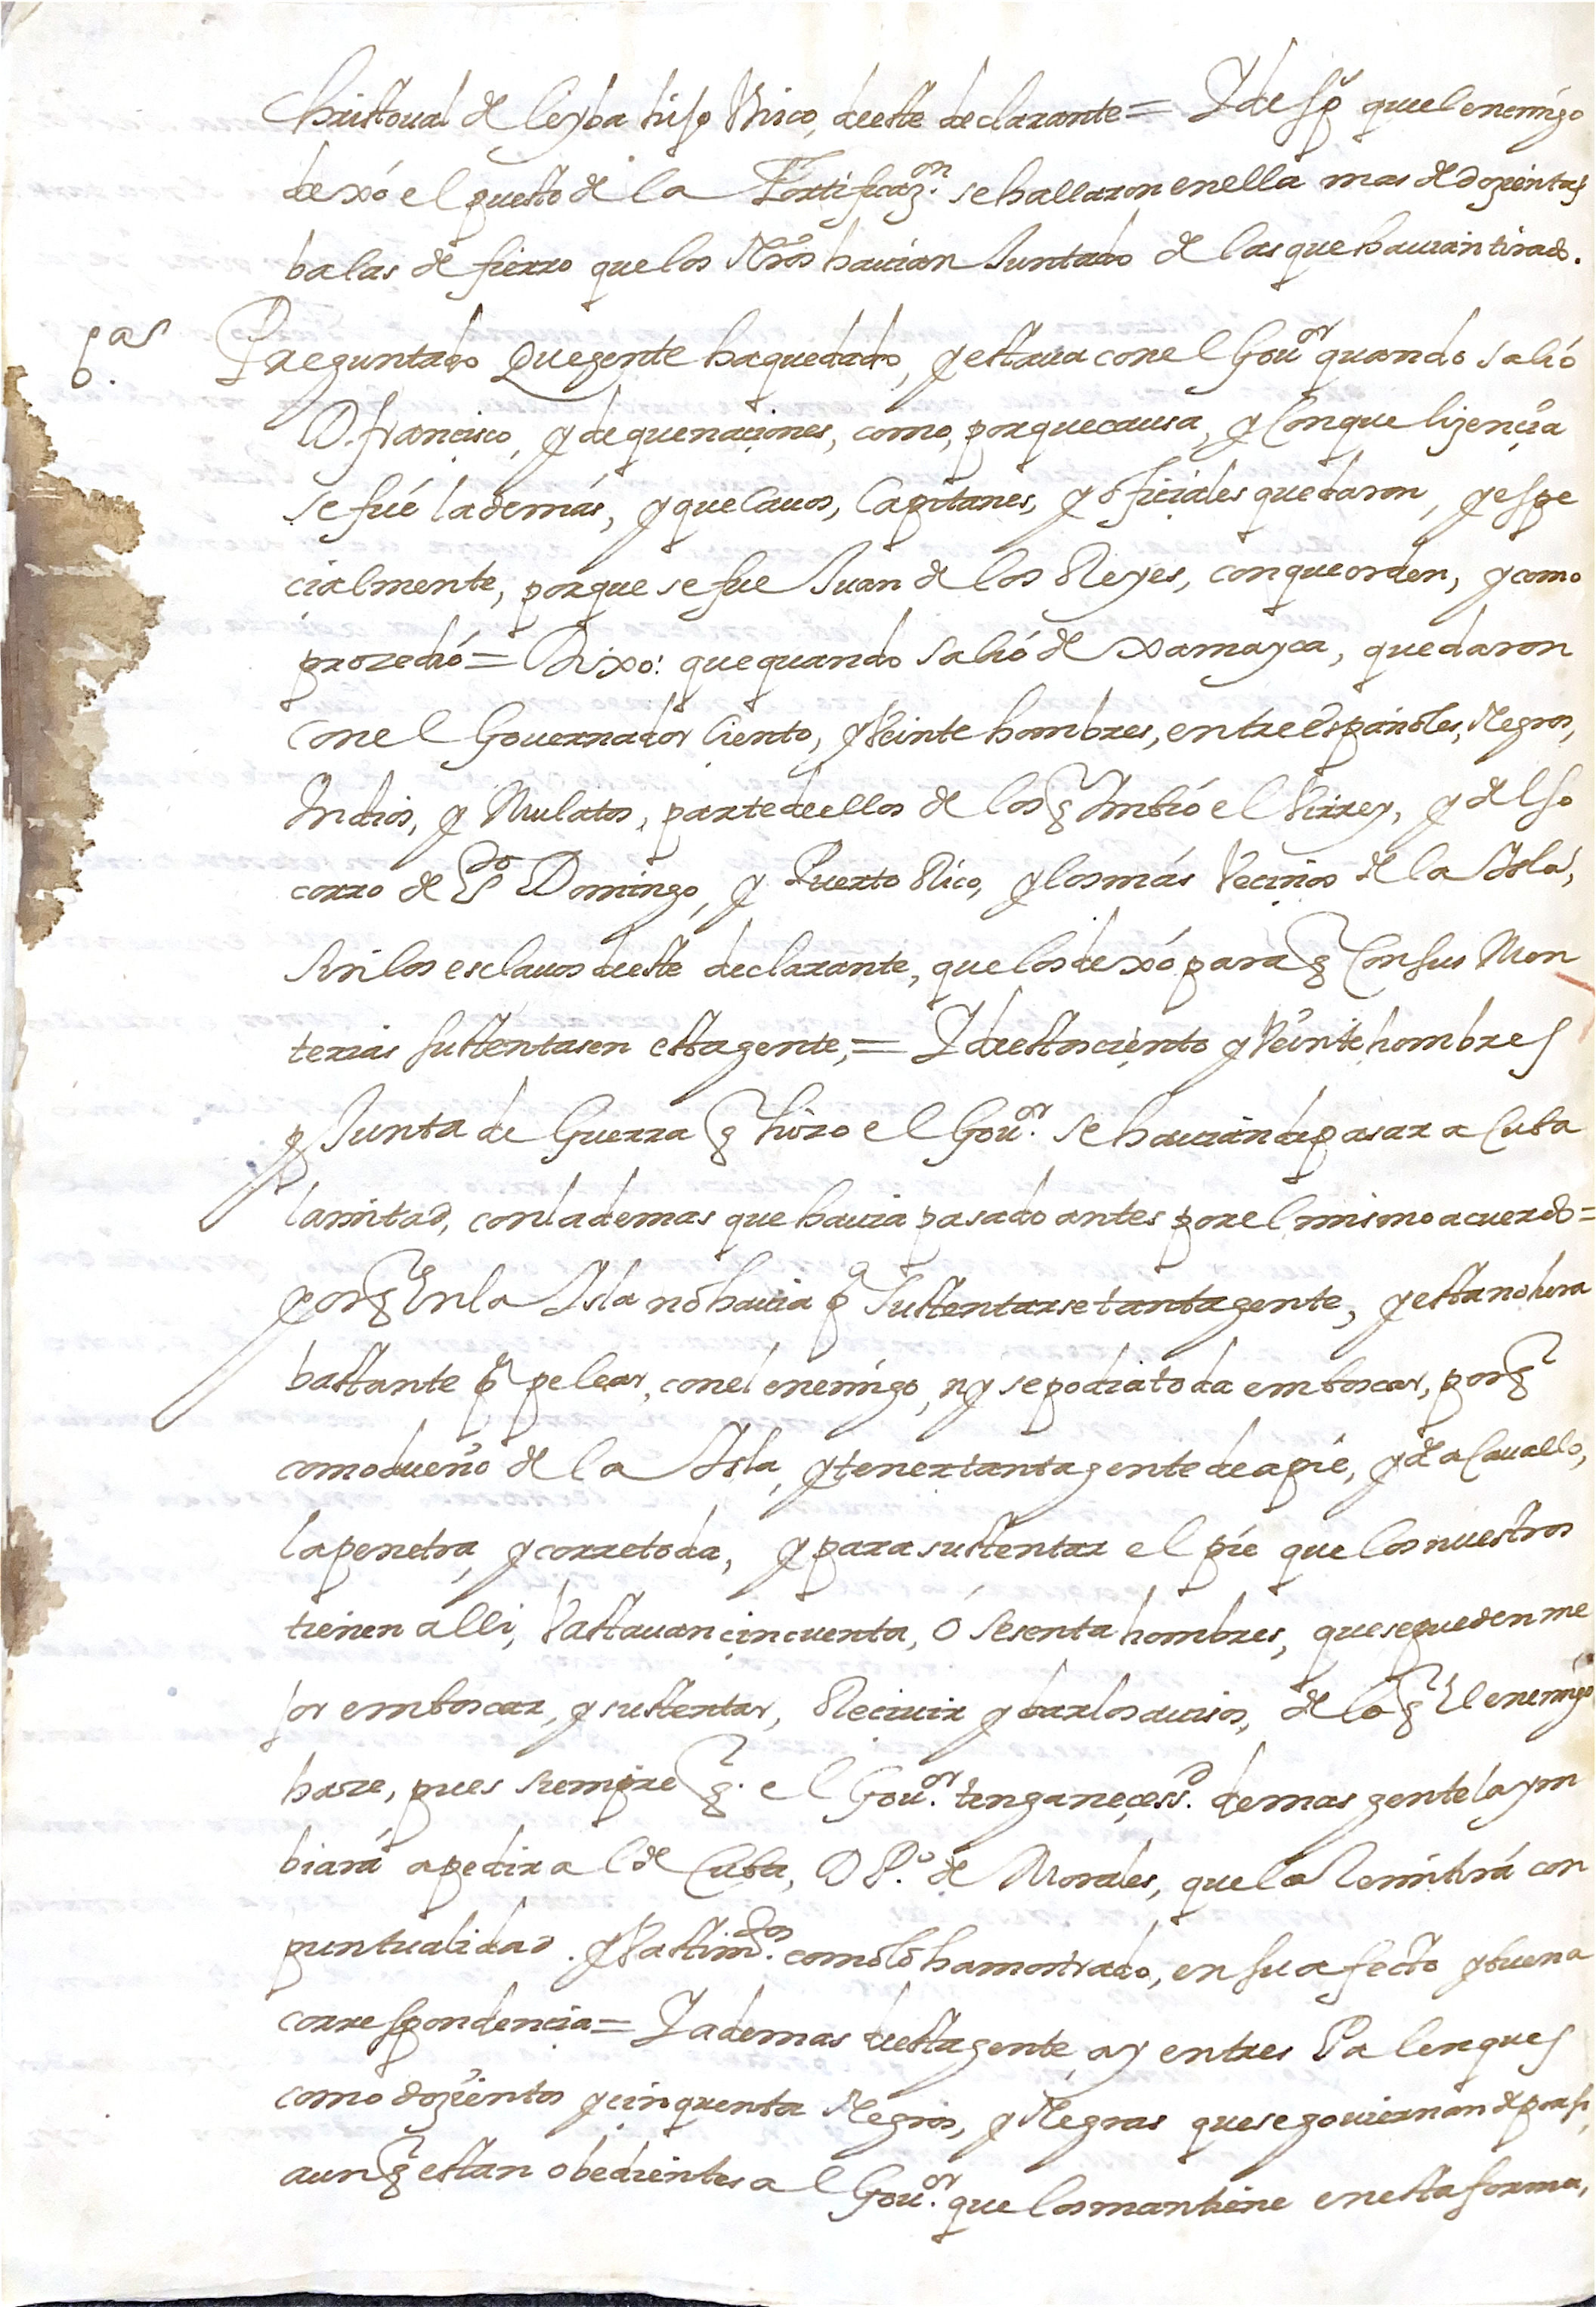 Christoual de leyba hijo Vnico, deeste declarante = Y desp.ˢ quel enemigo
dexó el puesto de la Fortificaz.ᵒⁿ se hallaron en ella mas de dozientas
balas de fierro que los Nrōs hauian Juntado de las que hauian tirado.
6.
Preguntado que gente ha quedado, y estaua con el Gouᵒʳ quando salió
D. francisco, y de que naciones, como, por que causa, y Con que lizencia
se fué la demás, y que Cauos, Capitanes, y ofiçiales quedaron, y espe
cialmente, porque se fue Juan de los Reyes, con que orden, y como
prozedió = Dixo: que quando salió de xamayca, quedaron
con el Gouernador Ciento, y Veinte hombres, entre españoles, Negros,
Indios, y Mulatos, parte de ellos de los q̃ Imbió el Virrey, y del so
corro de S.ᵗᵒ Domingo, y Puerto Rico, y los más Veçinos de la Isla,
Sin los esclauos deeste declarante, que los dexó para q̃ Con sus Mon
terias sustentasen esta gente, = Y de estos ciento y Veinte hombres
p Junta de Guerra q̃ hizo el Gou.ᵒʳ se hauian de pasar a Cuba
la mitad, con la demas que hauia pasado antes por el mismo acuerdo =
por q̃ En la Isla no hauia pᵃ Sustentarse tanta gente, y esta no hera
bastante pᵃ pelear, con el enemigo, ny se podia toda emboscar, por q̃
como dueño de la Isla, y tener tanta gente de a pie, y de a Cauallo,
la penetra, y corre toda, y para sustentar el pie que los nuestros
tienen alli, Vastauan çincuenta, ó Sesenta hombres, que se pueden me
jor emboscar, y sustentar, Reciuir y dar los auisos, de lo q̃ El enemigo
haze, pues siempre q̃. el Gou.ᵒʳ tenga neçess.ᵈ de mas gente la ym
biará a pedir al de Cuba, D P.º de Morales, que la Remitirá con
puntualidad. y Vastim.ᵗᵒˢ como lo ha mostrado, en su afecto y buena
correspondencia = Y ademas de esta gente, ay en tres Palenques
como dozientos y cinquenta Negros, y Negras que se gouiernan de por si,
aunq̃ estan obedientes al Gou.ᵒʳ que los mantiene en esta forma,